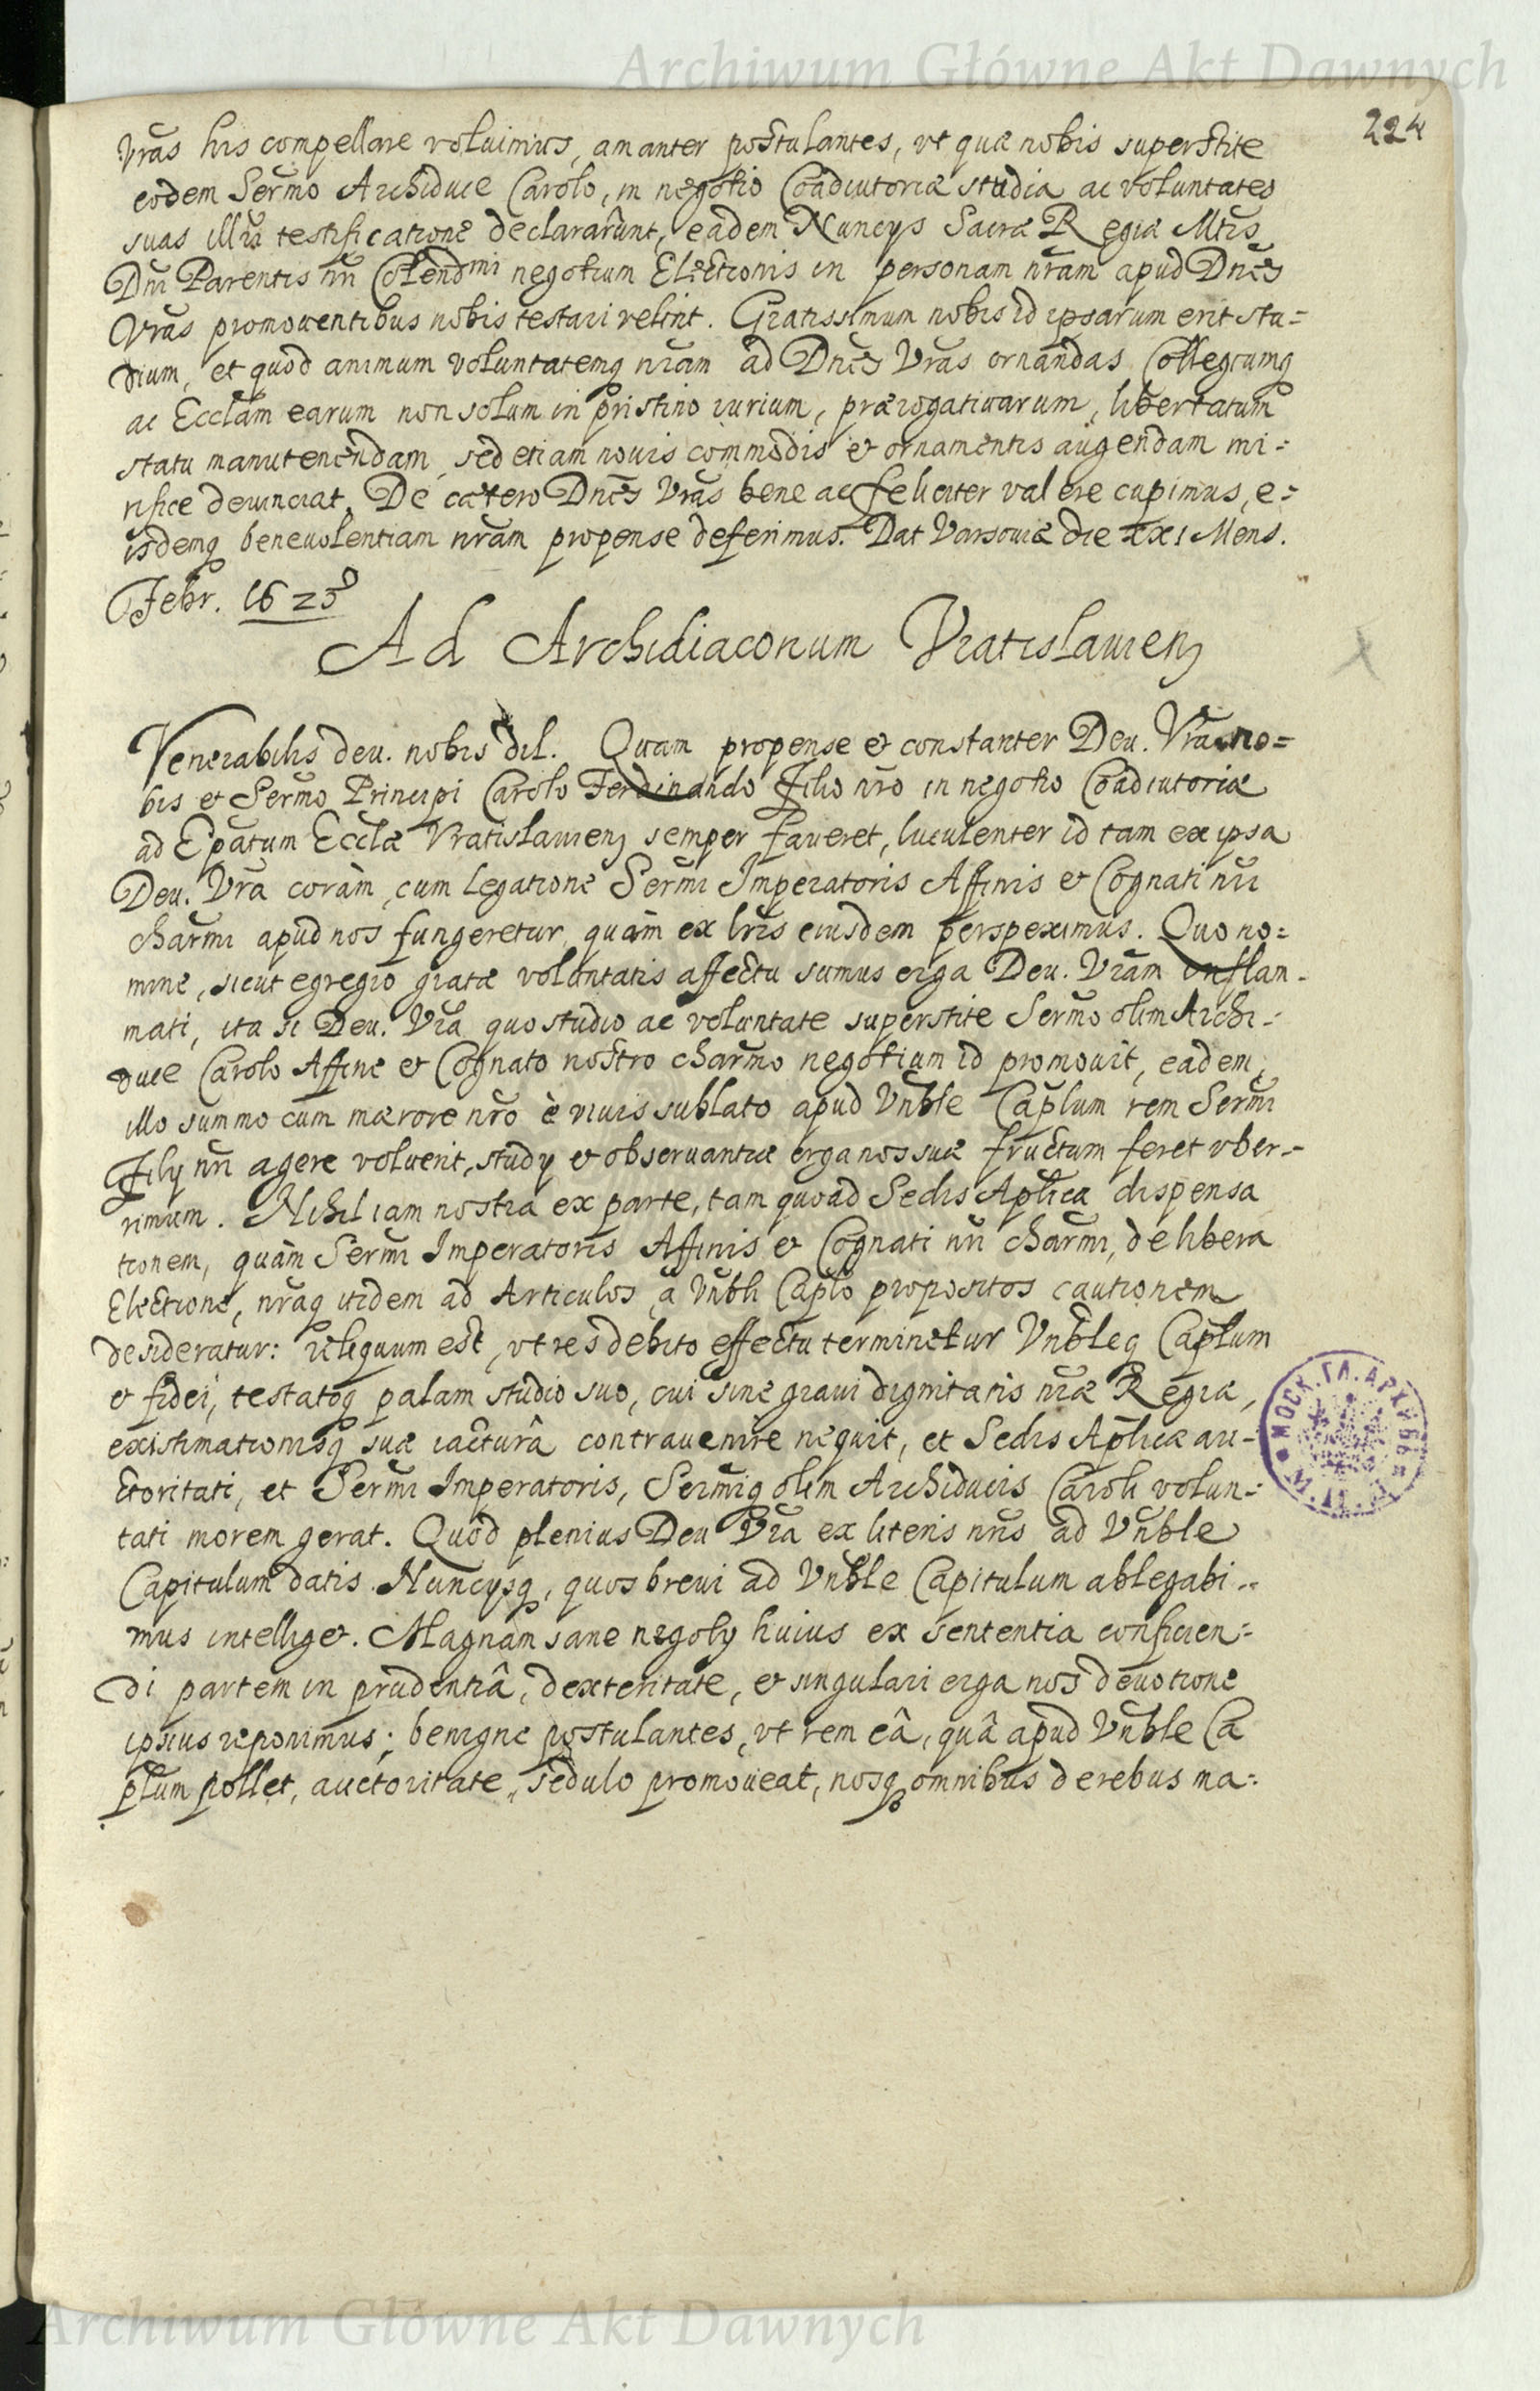 Archiwum Główne Akt Dawnych
224
Vrãs his compellare voluimus, amanter postulantes, vt quæ nobis superstite
eodem Sermõ Archiduce Carolo, in negotio Coadiutoriæ studia ac voluntates
suas testificatione declararûnt, eadem Nuncys Sacræ Regiæ Mtis
Dni Parentis nri Colendmi negotium Electionis in personam nrãm apud Dnẽs
Vrãs promouentibus nobis testari velint. Gratissimum nobis id ipsarum erit stu=
dium, et quod animum voluntatemq nrãm ad Dnẽs Vrãs ornandas Collegiumq
ac Ecclãm earum non solum in pristino iurium, prærogatiuarum, libertatum
statu manutenendam, sed etiam nouis commodis et ornamentis augendam mi=
rifice deuinciat. De cætero Dnẽs Vrãs bene ac feliciter valere cupimus, e=
isdemq beneuolentiam nrãm propense deferimus. Dat Varsouiæ die XXI Mens.
Febr. 1625
Ad Archidiaconum Vratislauien
Venerabilis deu. nobis dil. Quam propense et constanter Deu. Vrã no=
bis et Sermõ Principi Carolo Ferdinando Filio nrõ in negotio Coadiutoriæ
ad Epãtum Ecclæ Vratislauien semper faueret, luculenter id tam ex ipsa
Deu. Vrã coràm, cum legatione Sermi Imperatoris Affinis et Cognati nri
charmi apud nos fungeretur, quàm ex lris eiusdem perspeximus. Quo no=
mine, sicut egregio gratæ voluntatis affectu sumus erga Deu. Vrãm inflam-
mati, ita si Deu. Vrã quo studio ac voluntate superstite Sermõ olim Archi-
duce Carolo Affine et Cognato nostro charmo negotium id promouit, eadem,
illo summo cum mærore nrõ è viuis sublato apud Vnble Caplum rem Sermi
Fily nri agere voluerit, study et obseruantiæ erga nos suæ fructum feret vber-
rimum. Nihil iam nostra ex parte, tam quoad Sedis Aplicæ dispensa
tionem, quàm Sermi Imperatoris Affinis et Cognati nri charmi, de libera
Electione, nrãq itidem ad Articulos à Vnbli Caplo propositos cautionem
desideratur: reliquum est, vt res debito effectu terminetur Vnbleq Caplum
et fidei, testatoq palam studio suo, cui sine graui dignitatis nræ Regiæ,
existimationisq suæ iacturâ contrauenire nequit, et Sedis Aplicæ au-
ctoritati, et Sermi Imperatoris, Sermiq olim Archiducis Caroli volun-
tati morem gerat. Quod plenius Deu Vrã ex literis nris ad Vnble
Capitulum datis Nuncysq, quos breui ad Vnble Capitulum ablegabi-
mus intelliget. Magnam sane negoty huius ex sententia conficien=
di partem in prudentiâ, dexteritate, et singulari erga nos deuotione
ipsius reponimus; benigne postulantes, vt rem eâ, quâ apud Vnble Ca
plum pollet, auctoritate, sedulo promoueat, nosq omnibus de rebus ma=
МОСК. ГЛ. АРХИВЪ
Archiwum Główne Akt Dawnych